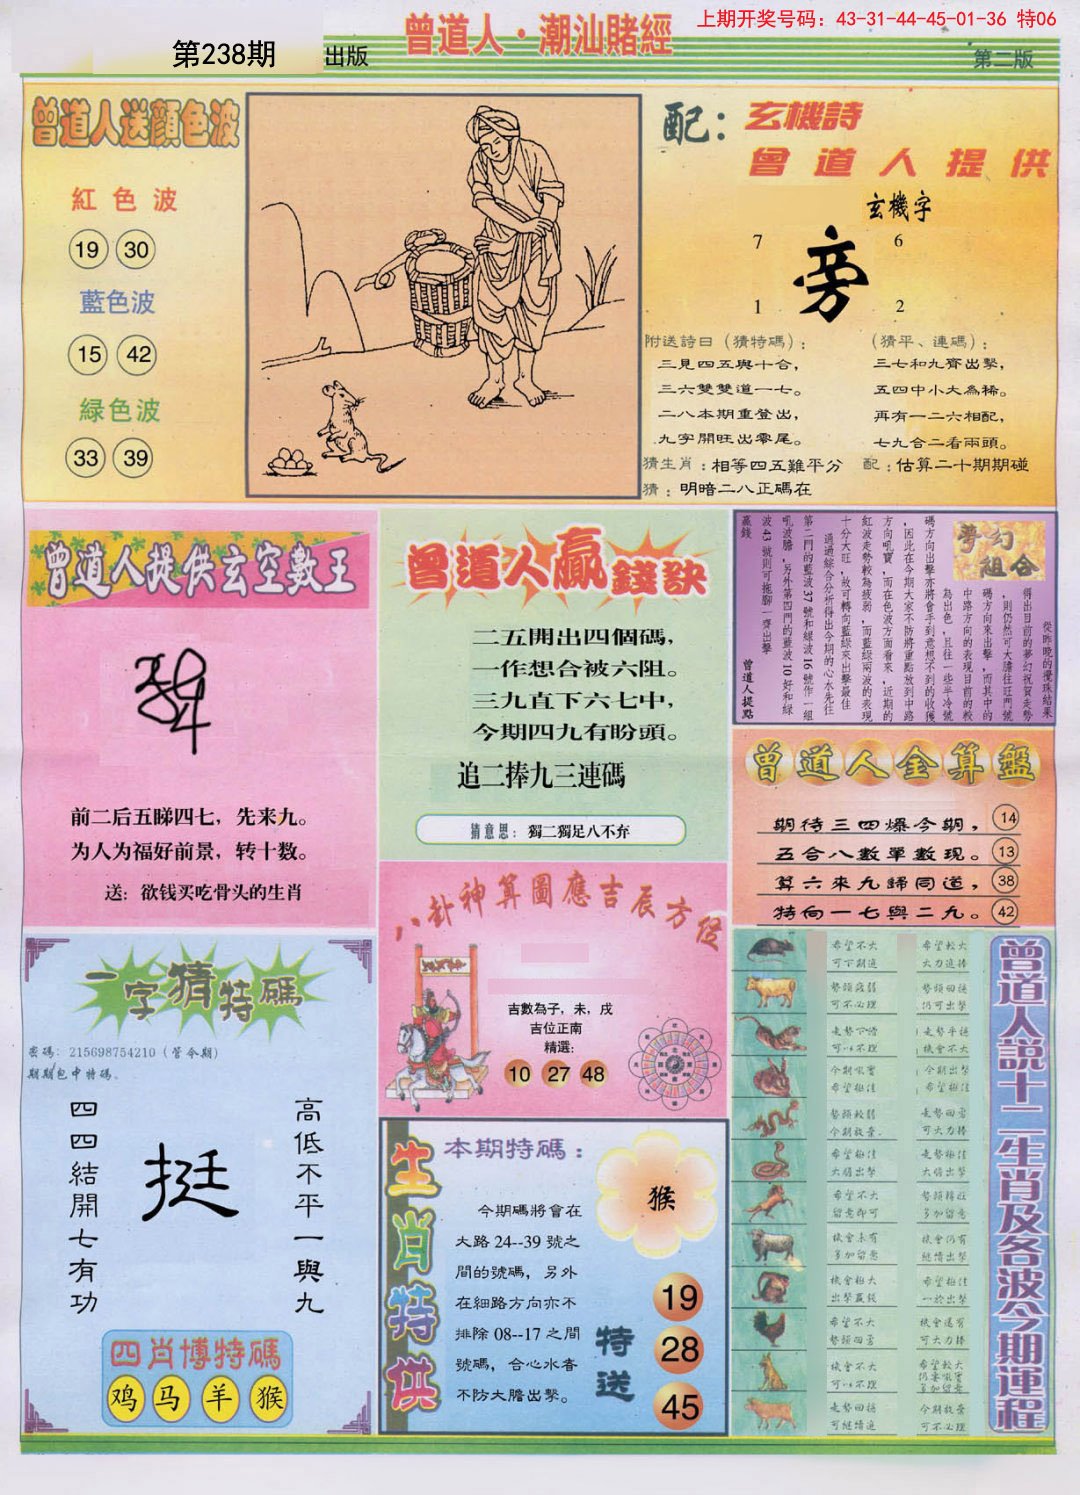 上期开奖号码：43-31-44-45-01-36 特06
曾道人·潮汕賭經
第238期
出版
第二版
曾道人送顏色波
紅色波
19 30
藍色波
15 42
綠色波
33 39
配：玄機詩
曾道人提供
玄機字
7 6
旁
1 2
附送詩曰（猜特碼）：
三見四五與十合，
三六雙雙道一七。
二八本期重登出，
九字開旺出零尾。
（猜平、連碼）：
三七和九齊出擊，
五四中小大為稀。
再有一二六相配，
七九合二看兩頭。
猜生肖：相等四五難平分
配：估算二十期期碰
猜：明暗二八正碼在
曾道人提供玄空數王
前二后五睇四七，先来九。
为人为福好前景，转十数。
送：欲钱买吃骨头的生肖
曾道人贏錢訣
二五開出四個碼，
一作想合被六阻。
三九直下六七中，
今期四九有盼頭。
追二捧九三連碼
猜意思：獨二獨足八不弃
夢幻組合
從昨晚的攪珠結果
得出目前的夢幻祝賀走勢
，則仍然可大膽往旺門號
碼方向來出擊，而其中的
中路方向的表現目前的較
為出色，且往一些半冷號
碼方向出擊亦將會手到意想不到的收獲
，因此在今期大家不防將重點放到中路
方向吼寶，而在色波方面看來，近期的
紅波走勢較為疲弱，而藍綠兩波的表現
十分大旺，故可轉向藍綠來出擊最佳
通過綜合分析得出今期的心水先往
第二門的藍波37號和綠波16號作一組
吼波膽，另外第四門的藍波10好和綠
波43號則可拖腳一齊出擊
贏錢
曾道人提點
曾道人金算盤
期待三四爆今期， 14
五合八數單數現。 13
算六來九歸同道， 38
特向一七與二九。 42
八卦神算圖應吉辰方位
吉數為子，未，戌
吉位正南
精選：
10 27 48
一字猜特碼
密碼：215698754210（管今期）
期期包中特碼、
高低不平一與九
挺
四四結開七有功
四肖博特碼
鸡 马 羊 猴
生肖特供
本期特碼：
今期碼將會在
大路 24--39 號之
間的號碼，另外
在細路方向亦不
排除 08--17 之間
號碼，合心水者
不防大膽出擊。
猴
特送
19
28
45
曾道人說十二生肖及各波今期運程
希望不大
可下期追
希望較大
大力追捧
勢頭疲弱
可不必理
勢頭回穩
仍可出擊
可以不理
走勢平穩
機會不大
今期吼寶
希望極佳
今期出擊
希望極佳
勢頭較弱
今期放棄
走勢回勇
可大力捧
希望極佳
大膽出擊
走勢極佳
大膽出擊
希望不大
留意即可
多加留意
機會未有
多加留意
機會仍有
繼續出擊
機會極大
出擊贏錢
希望極佳
一於出擊
希望不大
勢頭回落
機會還有
可大力捧
機會不大
可以不理
希望較大
多加留意
走勢回穩
可繼續追
今期放棄
可不必理